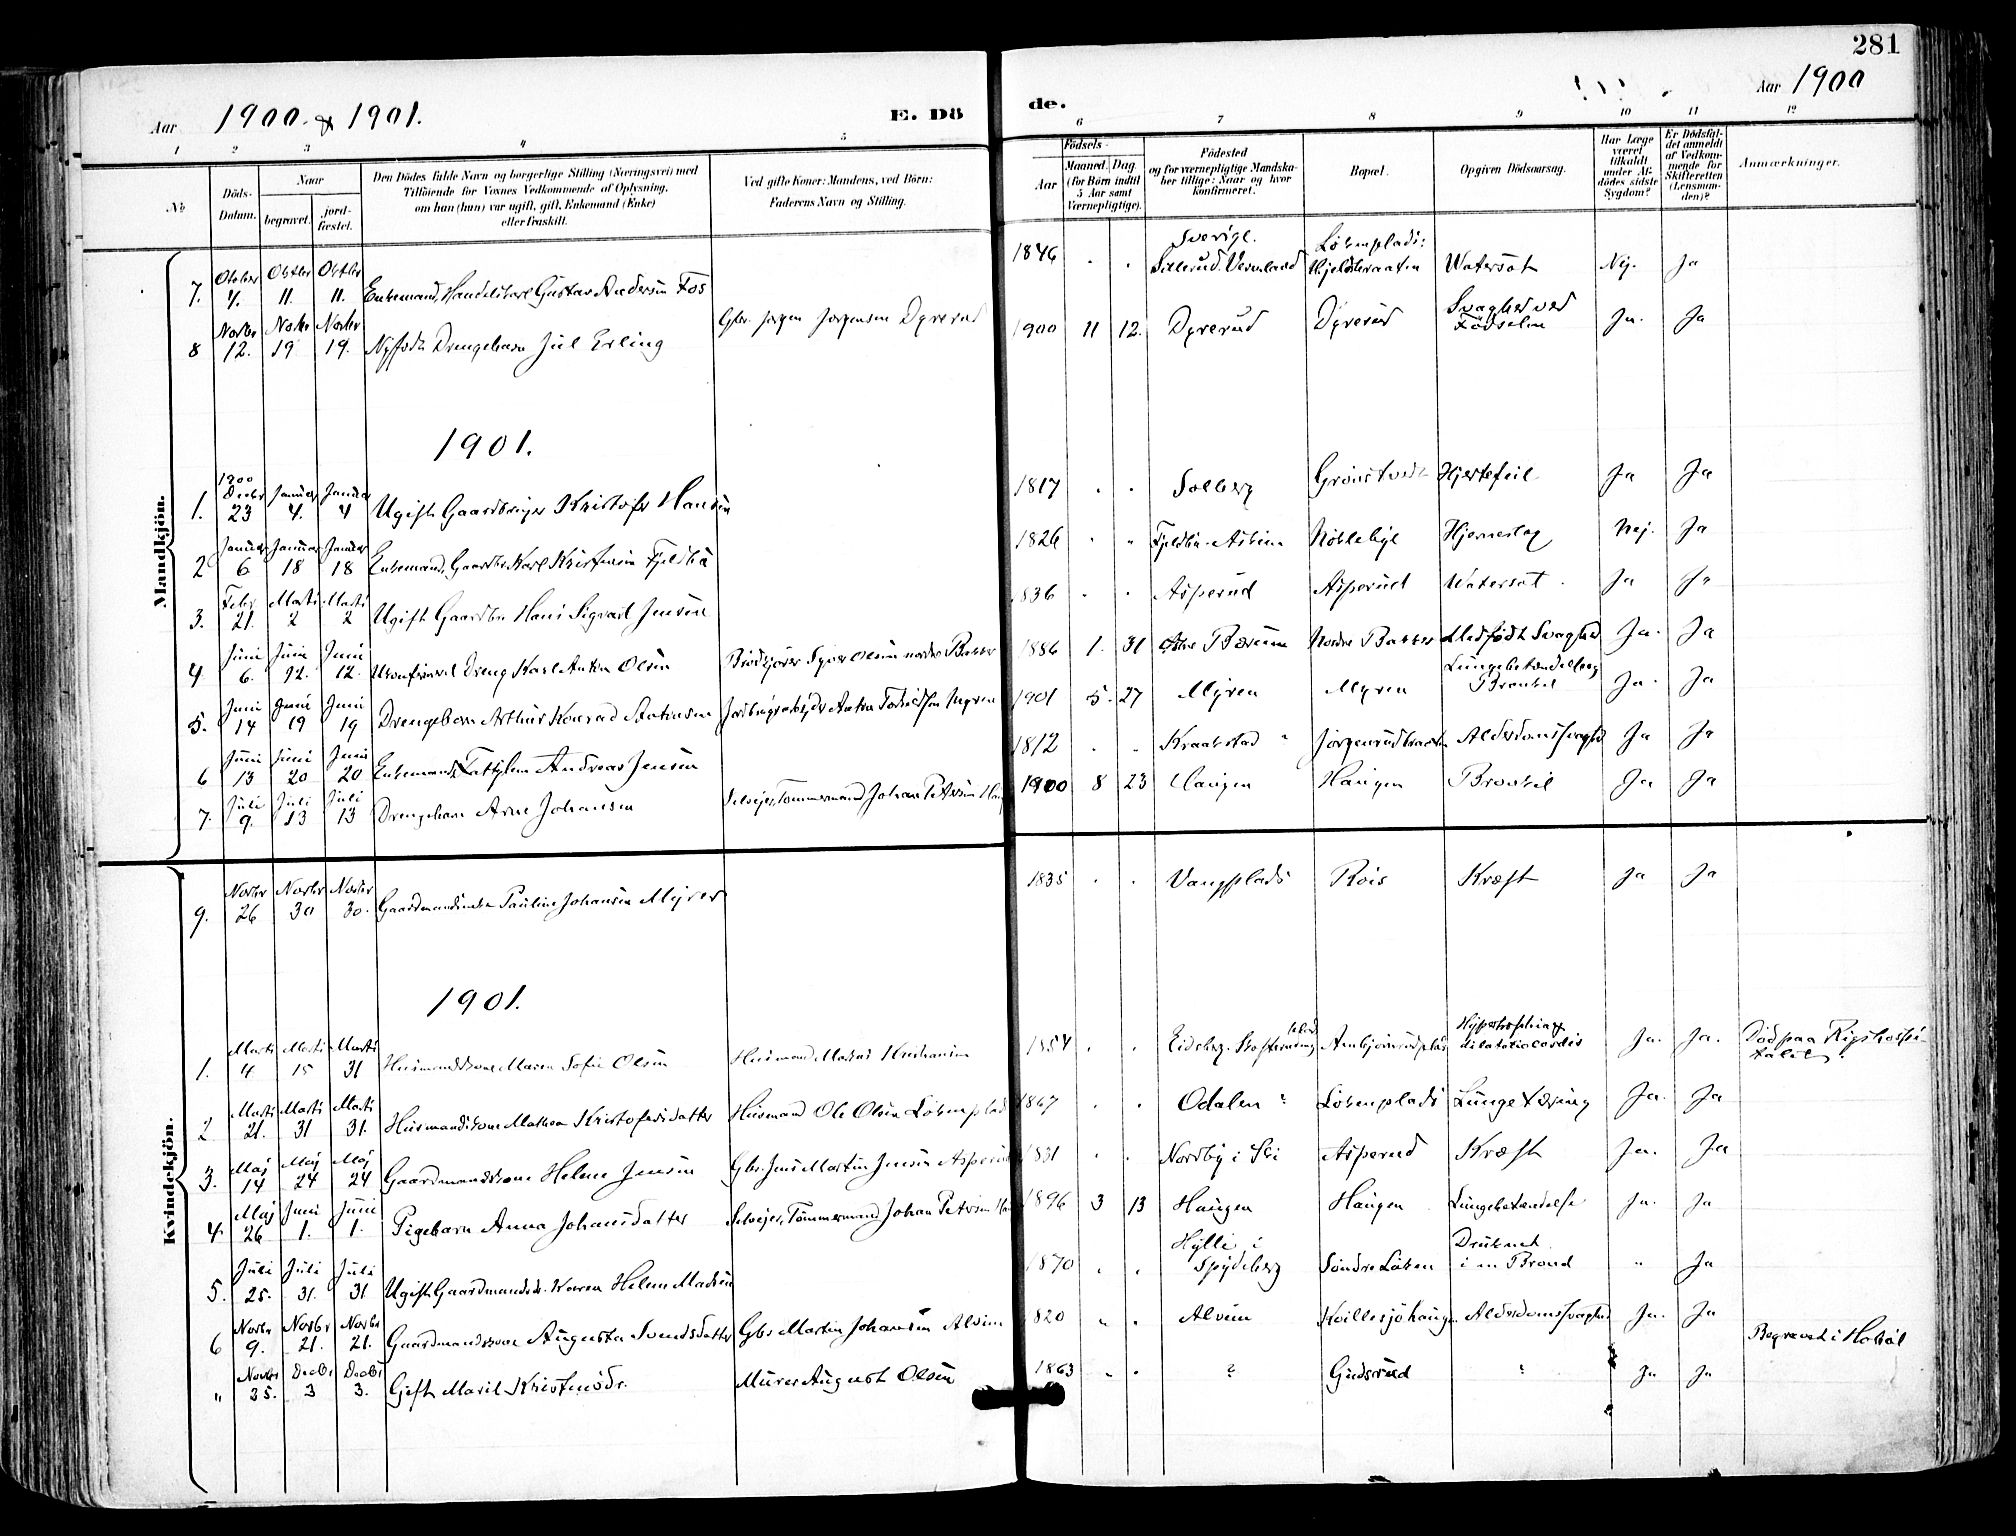 281
Aar 1900 & 1901. E. Dö
de. Aar 1900
1 2 3 4 5
6 7 8 9 10 11 12
No
Döds-Datum.
Naar
begravet.
jord-fæstet.
Den Dödes fulde Navn og borgerlige Stilling (Næringsvei) med
Tilföiende for Voxnes Vedkommende af Oplysning,
om han (hun) var ugift, gift, Enkemand (Enke)
eller fraskilt.
Ved gifte Koner: Mandens, ved Börn:
Faderens Navn og Stilling.
Födsels-
Aar
Maaned. Dag.
(for Börn indtil
5 Aar samt
Værnepligtige).
Födested
og for værnepligtige Mandska-
ber tillige: Naar og hvor
konfirmeret.
Bopæl.
Opgiven Dödsaarsag.
Har Læge
været
tilkaldt
under Af-
dödes sidste
Sygdom?
Er Dödsfal-
det anmeldt
af Vedkom-
mende for
Skifteretten
(Lensman-
den)?
Anmærkninger.
Mandkjön.
7. Oktober 4. Oktbr 11. Oktbr 11. Enkemand, Gustav Andersen Fos 1846 . . Sverige. Sillerud. Vermland Lökenplads: Watersot Nej. Ja
8 Novbr 12. Novbr 19 Novbr 19. Nyfödt Drengebarn Jul Erling Gbr. Jörgen Jörgensen Dyrerud 1900 11 12. Dyrerud Dyrerud Svaghed ved Födselen Ja. Ja
1901.
1. 1900 Decbr 23 Januar 4. Januar 4 Ugift Gaardbruger Kristofer Hansen 1817 . . Solberg Hjertefeil Ja Ja
2 Januar 6 Januar 18 Januar 18 Enkemand, Gaardbr. Karl Kristensen Fjeldbu 1826 . . Fjeldbu Hjerneslag Nej. Ja
3. Febr 21. Marts 2 Marts 2 Ugift Gaardbr Hans Sigvard Jensen 836 . . Asperud Asperud Watersot. Ja Ja
4. Juni 6. Juni 12. Juni 12. Ukonfirmeret Dreng Karl Anton Olsen Brödkjörer Syver Olsen nordre Bakker 1886 1. 31 Östre Bærum Nordre Bakker Medfödt Svaghed Ja. Ja
5. Juni 14 Juni 19 Juni 19 Drengebarn Arthur Konrad Antonsen 1901 5. 27 Myren Myren Lungebetændelse og Bronkit Ja. Ja
6 Juni 13 Juni 20 Juni 20 Enkemand, Fattiglem Andreas Jensen 1812 . . Kraakstad Jörgenrudbraaten Alderdomssvaghed Ja Ja
7. Juli 9. Juli 13 Juli 13 Drengebarn Arne Johansen Selveier, Tömmermand Johan Petersen 1900 8 23 Haugen Haugen Bronkit Ja Ja
Kvindekjön.
9. Novbr 26 Novbr 30 Novbr 30. Gaardmandsenke Pauline Johansen Myrer 1835 . . Vangsplads Rois Kræft Ja Ja
1901.
1. Marts 4. Marts 15 Marts 31 Husmandskone Maren Sofie Olsen Husmand 1854 . . Eidsberg. Hypertrophia & dilatatio cordis Ja. Ja. Död paa Rigshospi-
talet.
2 Marts 21. Marts 31 Marts 31. Husmandskone Mathea Kristofersdatter Husmand Ole Olsen Lökenplads 1867 . . Odalen Lökenplads Lungetæring Ja. Ja
3. Maj 14 Maj 24 Maj 24 Gaardmandskone Helene Jensen Gbr. Jens Martin Jensen Asperud 1831 . . Nordby i Ski Asperud Kræft Ja. Ja
4. Maj 26 Juni 1. Juni 1. Pigebarn Anna Johansdatter Selveier, Tömmermand Johan Petersen 1896 3 13 Haugen Haugen Lungebetændelse Ja. Ja
5. Juli 25. Juli 31. Juli 31 Ugift Gaardmandsd. Karen Helene Madsen 1870 . . Hylli i Spydeberg Söndre Löken Druknet i en Brönd " Ja
6 Novbr 9. Novbr 21. Novbr 21. Gaardmandskone Augusta Svendsdatter Gbr Martin Johansen Alvim 820 " . Alvim Kvillesjöhaugen Alderdomssvaghed Ja. Ja
" Novbr 25. Decbr 3 Decbr 3. Gift Marit Kristensdr. Murer August Olsen 1863 " . ? Gudsrud ? Ja Ja Begravet i Hoböl